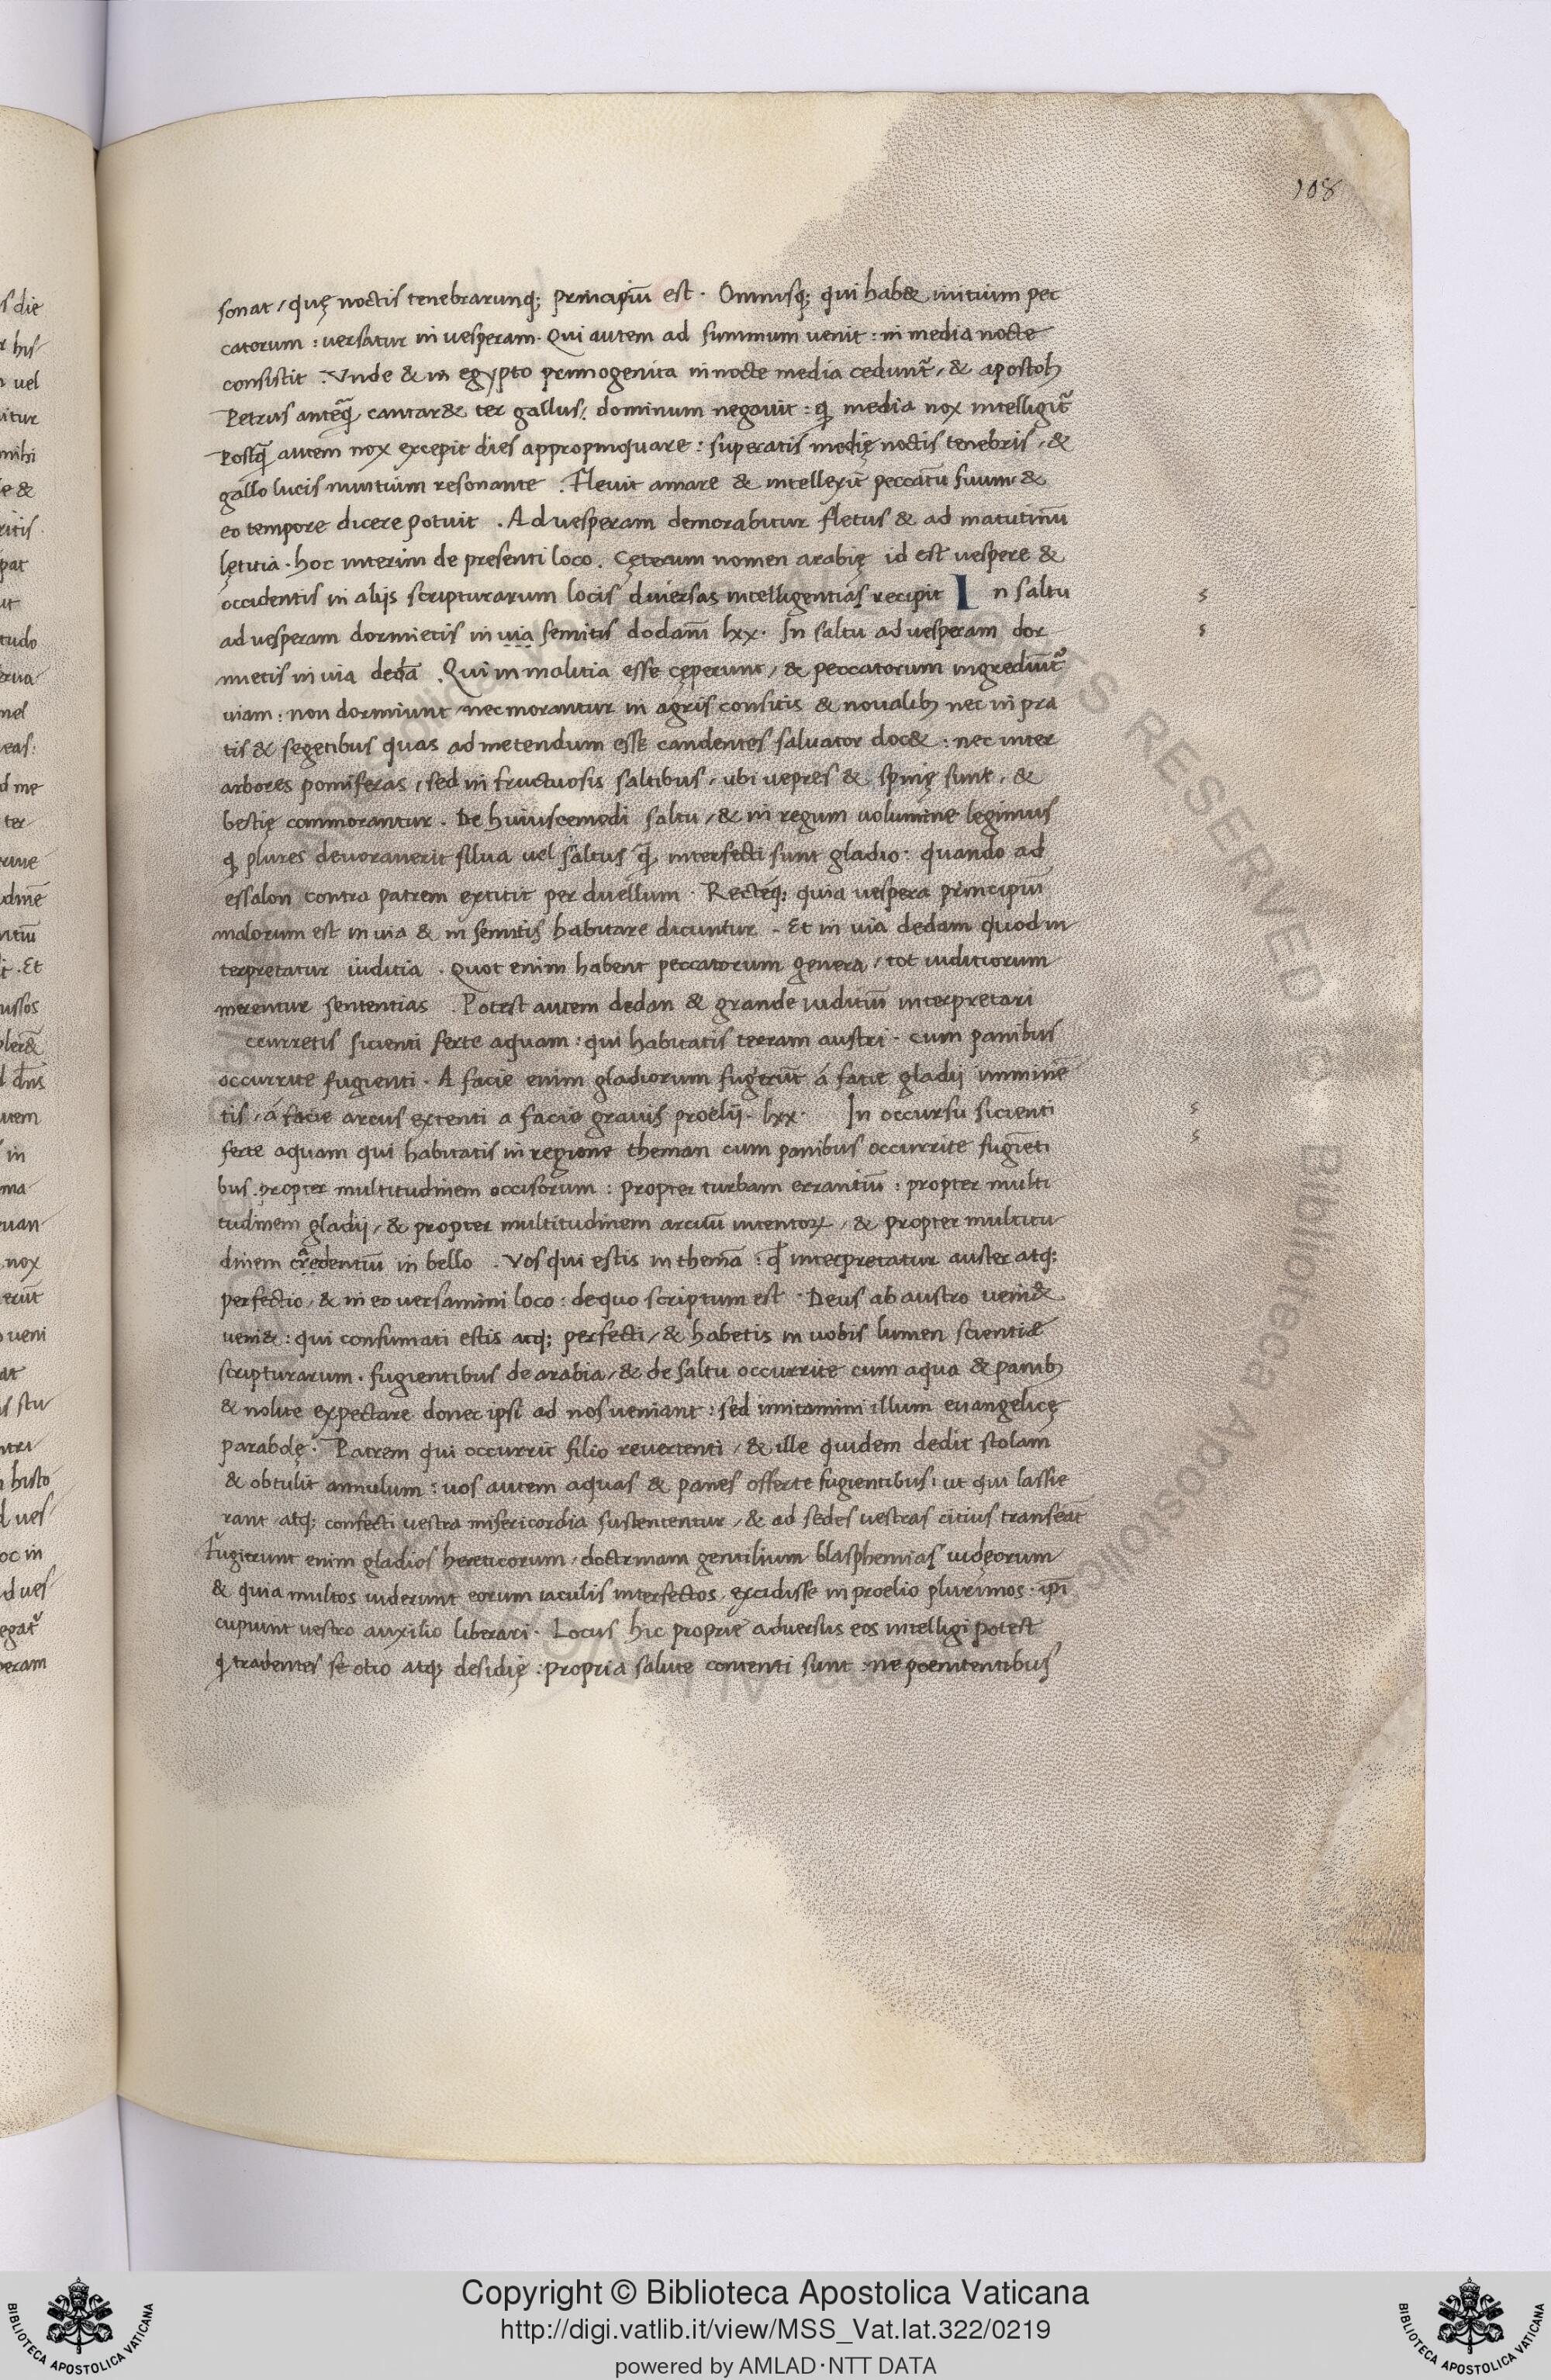 108
sonat / quę noctis tenebrarunq; principiū est . Omnisq; qui hab& initium pec
catorum : uersatur in uesperam . Qui autem ad summum uenit : in media nocte
consistit . Vnde & in egypto primogenita in nocte media ceduntr̃ , & apostoli
Petrus anteq̃ cantar& ter gallus : dominum negauit : q media nox intelligitr̃
Postq̃ autem nox excepit dies appropinquare : superatis medię noctis tenebris , &
gallo lucis nuntium resonante . Fleuit amare & intellexit peccatū suum &
eo tempore dicere potuit . Ad uesperam demorabitur fletus & ad matutinū
lętitia . hoc interim de presenti loco . Cęterum nomen arabię id est uespere &
occidentis in alijs scripturarum locis diuersas intelligentias recipit I n saltu
ad uesperam dormietis in uia semitis dodanī lxx . In saltu ad uesperam dor
mietis in uia dedā . Qui in malitia esse cęperunt , & peccatorum ingrediūtr̃
uiam : non dormiunt nec morantur in agris consitis & noualib; nec in pra
tis & segetibus quas ad metendum esse candentes saluator doc& : nec inter
arbores pomiferas , sed in fructuosis saltibus , ubi uepres & spinę sunt , &
bestię commorantur . De huiuscemodi saltu , & in regum uolumine legimus
q plures deuorauerit silua uel saltus q̃ interfecti sunt gladio : quando ad
essalon contra patrem extitit per duellum . Recteq; quia uespera principiū
malorum est in uia & in semitis habitare dicuntur . Et in uia dedam quod in
terpretatur iuditia . Quot enim habent peccatorum genera , tot iuditiorum
merentur sententias . Potest autem dedan & grande iuditiū interpretari
ccurretis sicienti ferte aquam : qui habitatis terram austri . cum panibus
occurrite fugienti . A facie enim gladiorum fugerūt á facie gladij imminē
tis , á facie arcus extenti a facie grauis proelij . lxx . In occursu sicienti
ferte aquam qui habitatis in regione theman cum panibus occurrite fugiēti
bus . propter multitudinem occisorum : propter turbam errantiū : propter multi
tudinem gladij , & propter multitudinem arcuū intentoꝝ , & propter multitu
dinem crēdentiū in bello . Vos qui estis in themā : qd̃ interpretatur auster atq;
perfectio , & in eo uersamini loco : de quo scriptum est . Deus ab austro ueni&
ueni& : qui consumati estis atq; perfecti , & habetis in uobis lumen scientiæ
scripturarum . fugientibus de arabia , & de saltu occurrite cum aqua & panib;
& nolite expectare donec ipsi ad nos ueniant : sed imitamini illum euangelicę
parabolę . Patrem qui occurrit filio reuertenti , & ille quidem dedit stolam
& obtulit annulum : uos autem aquas & panes offerte fugientibus : ut qui lassie
rant atq; confecti uestra misericordia sustententur , & ad sedes uestras citius transeāt
Fugierunt enim gladios hereticorum , doctrinam gentilium blasphemias iudęorum
& quia multos uiderunt eorum iaculis interfectos , excidisse in proelio plurimos . ipi̅
cupiunt uestro auxilio liberari . Locus hic proprie aduersus eos intelligi potest
q tradentes se otio atq; desidię : propria salute contenti sunt : ne poenitentibus
s
s
s
s
s die
r his
n uel
itur
mihi
e &
ritis
pat
ut
tudo
erua
mel
eas :
d me
ter
dinē
ntiū
Et
ussos
d dn̄s
utem
in
ma
uan
nox
erūt
o ueni
at
is stu
ntri
n histo
d ues
oc in
d ues
egatr̃
peram
Copyright © Biblioteca Apostolica Vaticana
http://digi.vatlib.it/view/MSS_Vat.lat.322/0219
powered by AMLAD·NTT DATA
BIBLIOTECA APOSTOLICA VATICANA
BIBLIOTECA APOSTOLICA VATICANA